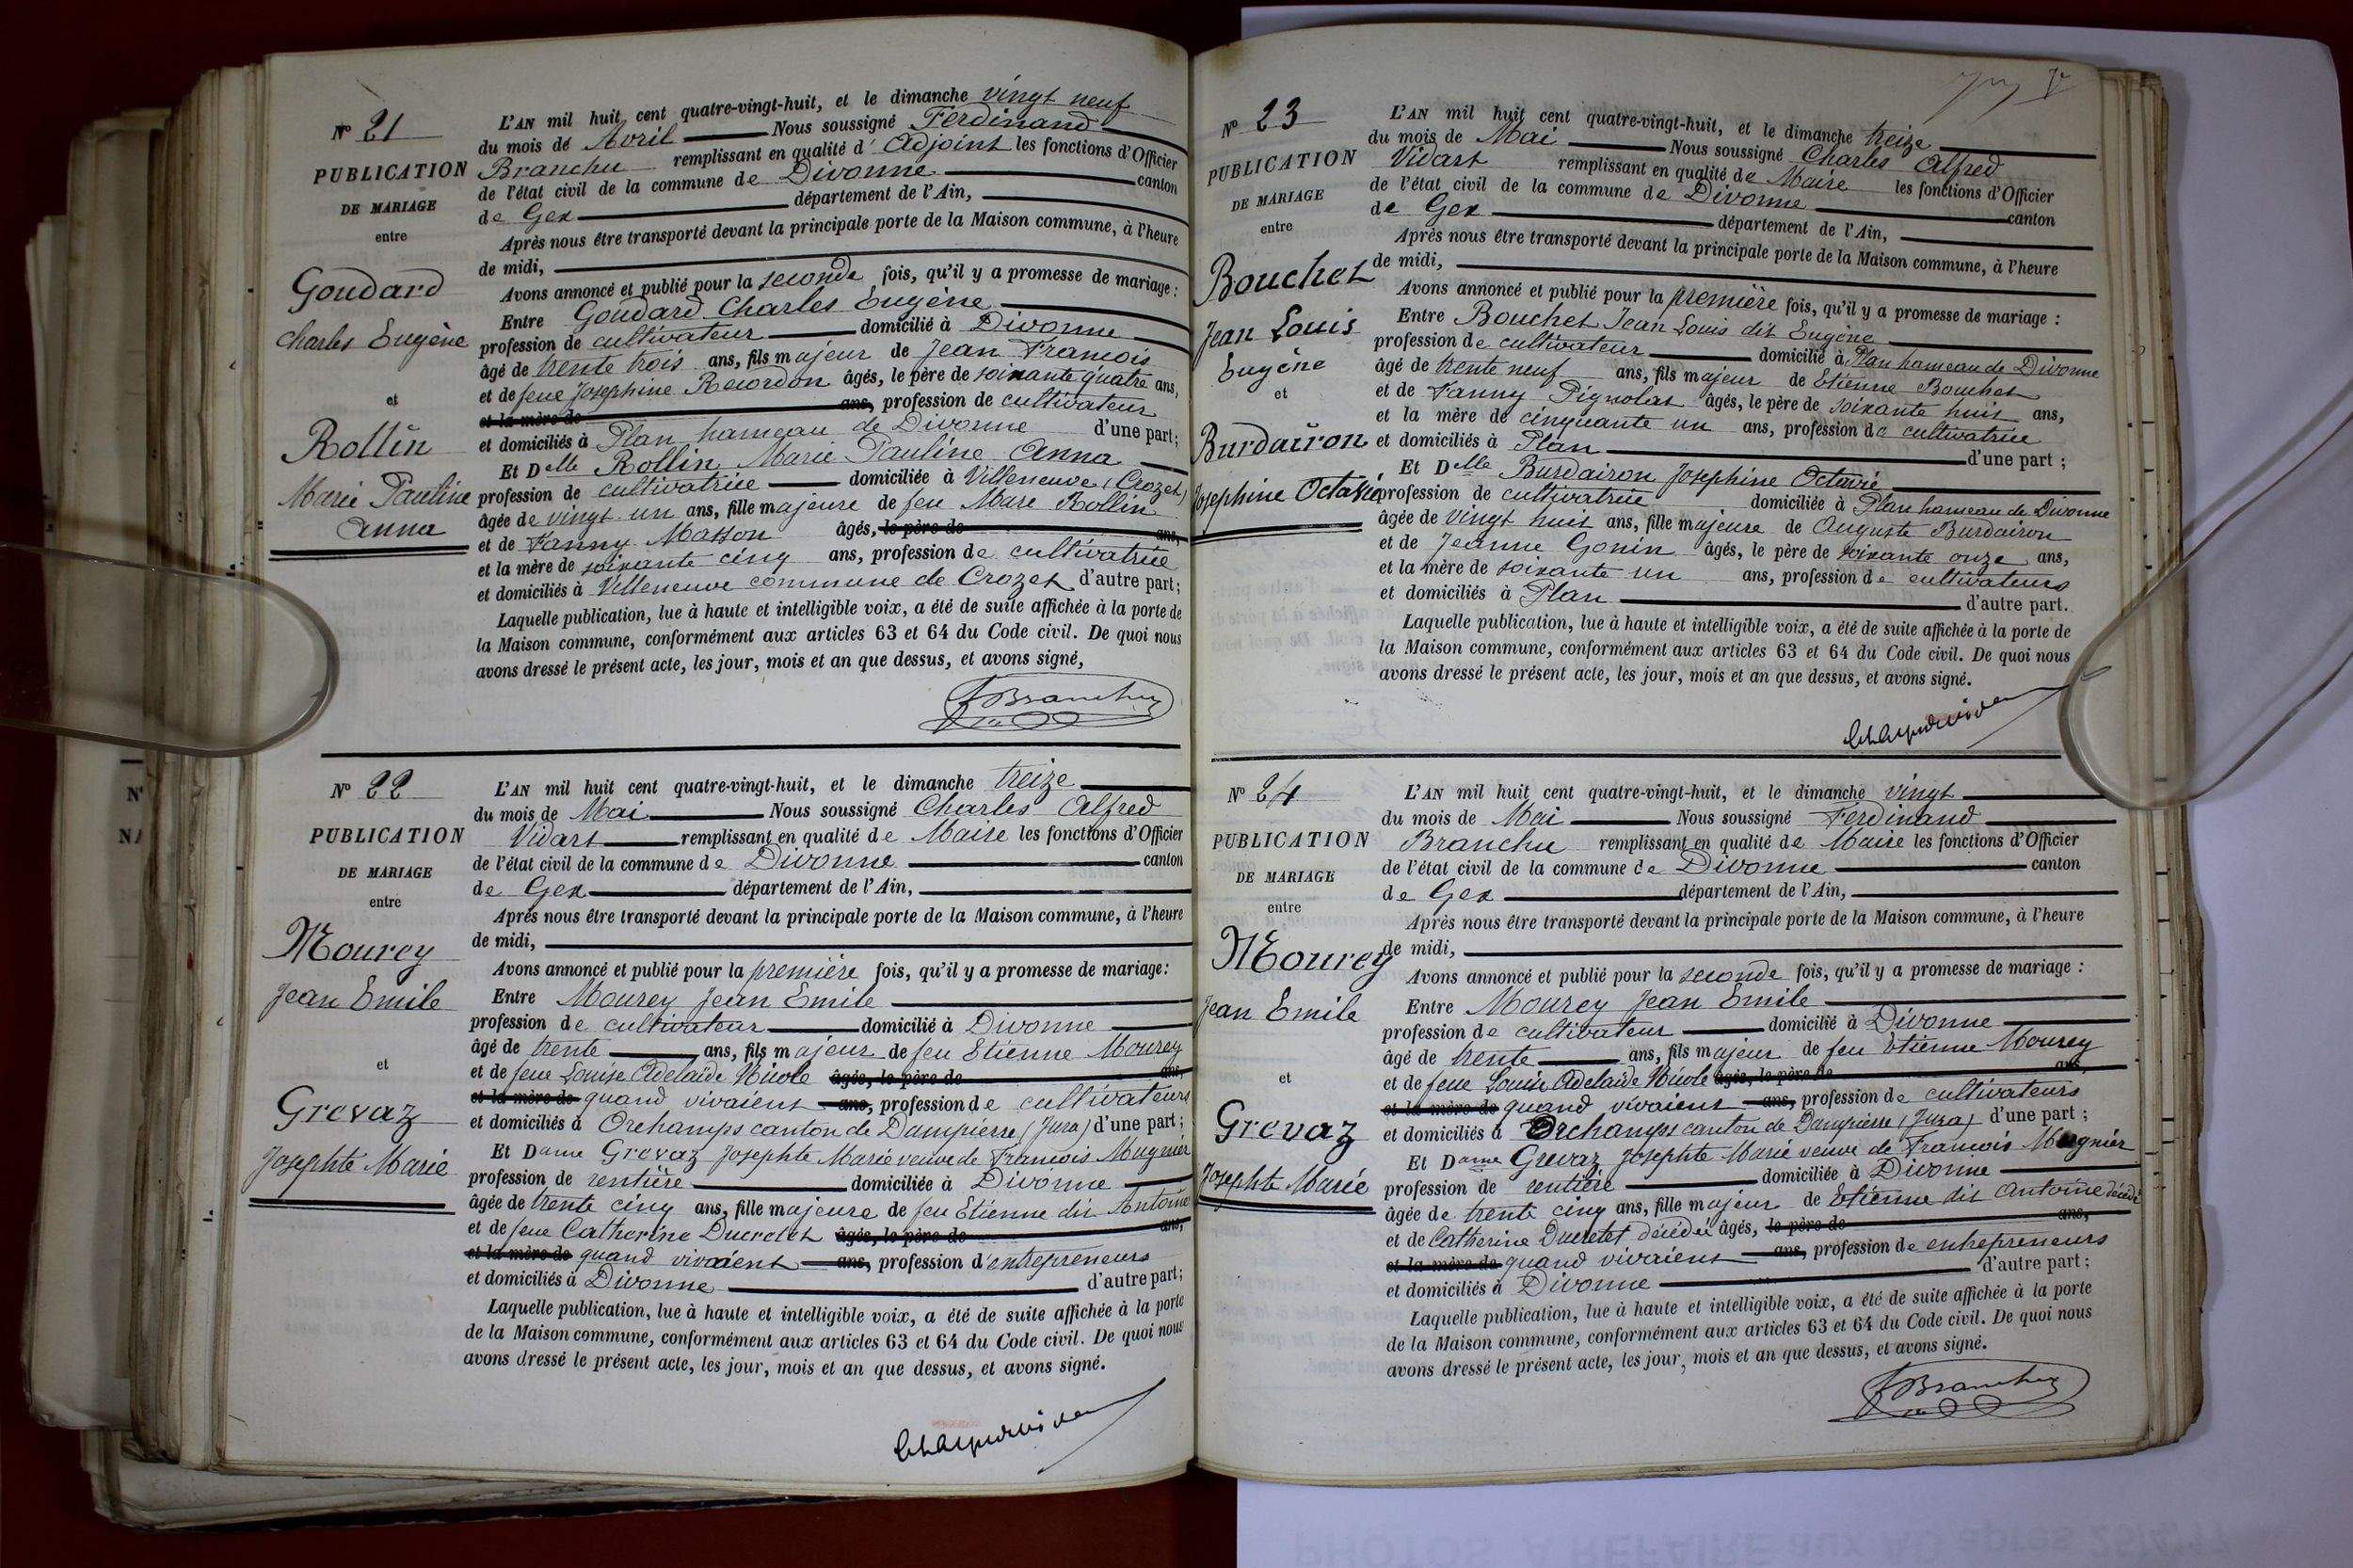 N° 21
PUBLICATION
DE MARIAGE
entre
Goudard
Charles Eugène
et
Rollin
Marie Pauline
Anna
L'AN mil huit cent quatre-vingt-huit, et le dimanche vingt neuf
du mois de Avril Nous soussigné Ferdinand
Branchu remplissant en qualité d'Adjoint les fonctions d'Officier
de l'état civil de la commune de Divonne canton
de Gex département de l'Ain,
Après nous être transporté devant la principale porte de la Maison commune, à l'heure
de midi,
Avons annoncé et publié pour la seconde fois, qu'il y a promesse de mariage :
Entre Goudard Charles Eugène
profession de cultivateur domicilié à Divonne
âgé de trente trois ans, fils majeur de Jean François
et de feue Josephine Recordon âgés, le père de soixante quatre ans,
et la mère de ans, profession de cultivateur
et domiciliés à Plan hameau de Divonne d'une part;
Et Delle Rollin Marie Pauline Anna
profession de cultivatrice domiciliée à Villeneuve (Crozet)
âgée de vingt un ans, fille majeure de feu Marc Rollin
et de Fanny Masson âgés, le père de ans,
et la mère de soixante cinq ans, profession de cultivatrice
et domiciliés à Villeneuve commune de Crozet d'autre part;
Laquelle publication, lue à haute et intelligible voix, a été de suite affichée à la porte de
la Maison commune, conformément aux articles 63 et 64 du Code civil. De quoi nous
avons dressé le présent acte, les jour, mois et an que dessus, et avons signé,
FBranchu
N° 22
PUBLICATION
DE MARIAGE
entre
Mourey
Jean Emile
et
Grevaz
Josephte Marie
L'AN mil huit cent quatre-vingt-huit, et le dimanche treize
du mois de Mai Nous soussigné Charles Alfred
Vidart remplissant en qualité de Maire les fonctions d'Officier
de l'état civil de la commune de Divonne canton
de Gex département de l'Ain,
Après nous être transporté devant la principale porte de la Maison commune, à l'heure
de midi,
Avons annoncé et publié pour la première fois, qu'il y a promesse de mariage:
Entre Mourey Jean Emile
profession de cultivateur domicilié à Divonne
âgé de trente ans, fils majeur de feu Etienne Mourey
et de feue Louise Adelaïde Nicole âgés, le père de ans,
et la mère de quand vivaient ans, profession de cultivateurs
et domiciliés à Orchamps canton de Dampierre (Jura) d'une part;
Et Dame Grevaz Josephte Marie veuve de François Mugnier
profession de rentière domiciliée à Divonne
âgée de trente cinq ans, fille majeure de feu Etienne dit Antoine
et de feue Catherine Ducretet âgés, le père de ans,
et la mère de quand vivaient ans, profession d'entrepreneurs
et domiciliés à Divonne d'autre part;
Laquelle publication, lue à haute et intelligible voix, a été de suite affichée à la porte
de la Maison commune, conformément aux articles 63 et 64 du Code civil. De quoi nous
avons dressé le présent acte, les jour, mois et an que dessus, et avons signé.
N° 23
PUBLICATION
DE MARIAGE
entre
Bouchet
Jean Louis
Eugène
et
Burdairon
Josephine Octavie
L'AN mil huit cent quatre-vingt-huit, et le dimanche treize
du mois de Mai Nous soussigné Charles Alfred
Vidart remplissant en qualité de Maire les fonctions d'Officier
de l'état civil de la commune de Divonne canton
de Gex département de l'Ain,
Après nous être transporté devant la principale porte de la Maison commune, à l'heure
de midi,
Avons annoncé et publié pour la première fois, qu'il y a promesse de mariage :
Entre Bouchet Jean Louis dit Eugène
profession de cultivateur domicilié à Plan hameau de Divonne
âgé de trente neuf ans, fils majeur de Etienne Bouchet
et de Fanny Pignolat âgés, le père de soixante huit ans,
et la mère de cinquante un ans, profession de cultivatrice
et domiciliés à Plan d'une part ;
Et Delle Burdairon Josephine Octavie
profession de cultivatrice domiciliée à Plan hameau de Divonne
âgée de vingt huit ans, fille majeure de Auguste Burdairon
et de Jeanne Gonin âgés, le père de soixante onze ans,
et la mère de soixante un ans, profession de cultivateurs
et domiciliés à Plan d'autre part.
Laquelle publication, lue à haute et intelligible voix, a été de suite affichée à la porte de
la Maison commune, conformément aux articles 63 et 64 du Code civil. De quoi nous
avons dressé le présent acte, les jour, mois et an que dessus, et avons signé.
N° 24
PUBLICATION
DE MARIAGE
entre
Mourey
Jean Emile
et
Grevaz
Josephte Marie
L'AN mil huit cent quatre-vingt-huit, et le dimanche vingt
du mois de Mai Nous soussigné Ferdinand
Branchu remplissant en qualité de Maire les fonctions d'Officier
de l'état civil de la commune de Divonne canton
de Gex département de l'Ain,
Après nous être transporté devant la principale porte de la Maison commune, à l'heure
de midi,
Avons annoncé et publié pour la seconde fois, qu'il y a promesse de mariage :
Entre Mourey Jean Emile
profession de cultivateur domicilié à Divonne
âgé de trente ans, fils majeur de feu Etienne Mourey
et de feue Louise Adelaïde Nicole âgés, le père de ans,
et la mère de quand vivaient ans, profession de cultivateurs
et domiciliés à Orchamps canton de Dampierre (Jura) d'une part ;
Et Dame Grevaz Josephte Marie veuve de François Mugnier
profession de rentière domiciliée à Divonne
âgée de trente cinq ans, fille majeur de Etienne dit Antoine décédé
et de Catherine Ducretet décédée âgés, le père de ans,
et la mère de quand vivaient ans, profession de entrepreneurs
et domiciliés à Divonne d'autre part ;
Laquelle publication, lue à haute et intelligible voix, a été de suite affichée à la porte
de la Maison commune, conformément aux articles 63 et 64 du Code civil. De quoi nous
avons dressé le présent acte, les jour, mois et an que dessus, et avons signé.
FBranchu